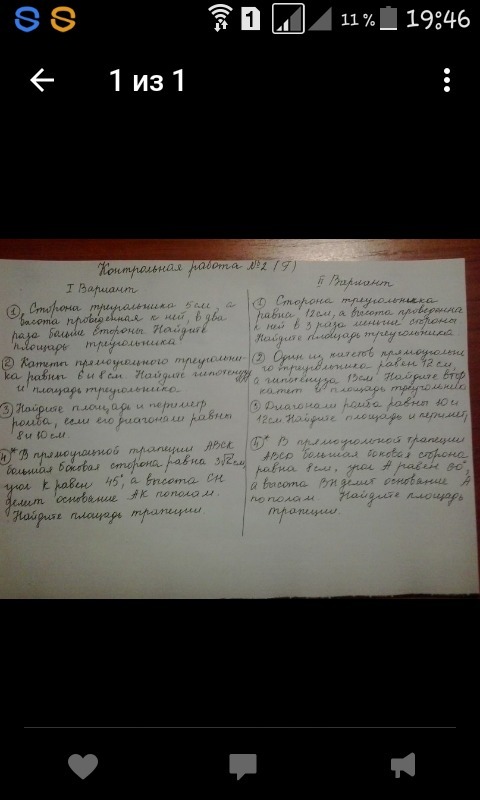 1 11% 19:46
1 из 1
Контрольная работа №2 (Г)
I Вариант
① Сторона треугольника 5 см, а
высота проведённая к ней, в два
раза больше стороны. Найдите
площадь треугольника.
② Катеты прямоугольного треугольни-
ка равны 6 и 8 см. Найдите гипотенузу
и площадь треугольника
③ Найдите площадь и периметр
ромба, если его диагонали равны
8 и 10 см.
④* В прямоугольной трапеции АВСК
большая боковая сторона равна 3√2 см,
угол К равен 45°, а высота СН
делит основание АК пополам.
Найдите площадь трапеции.
II Вариант
① Сторона треугольника
равна 12 см, а высота проведённа
к ней в 3 раза меньше стороны
Найдите площадь треугольника
② Один из катетов прямоуголь
го треугольника равен 12 см,
а гипотенуза 13 см. Найдите втор
катет и площадь треугольника
③ Диагонали ромба равны 10 и
12 см. Найдите площадь и периметр
④* В прямоугольной трапеции
АВСD большая боковая сторона
равна 8 см, угол А равен 60°,
а высота ВН делит основание А
пополам. Найдите площадь
трапеции.